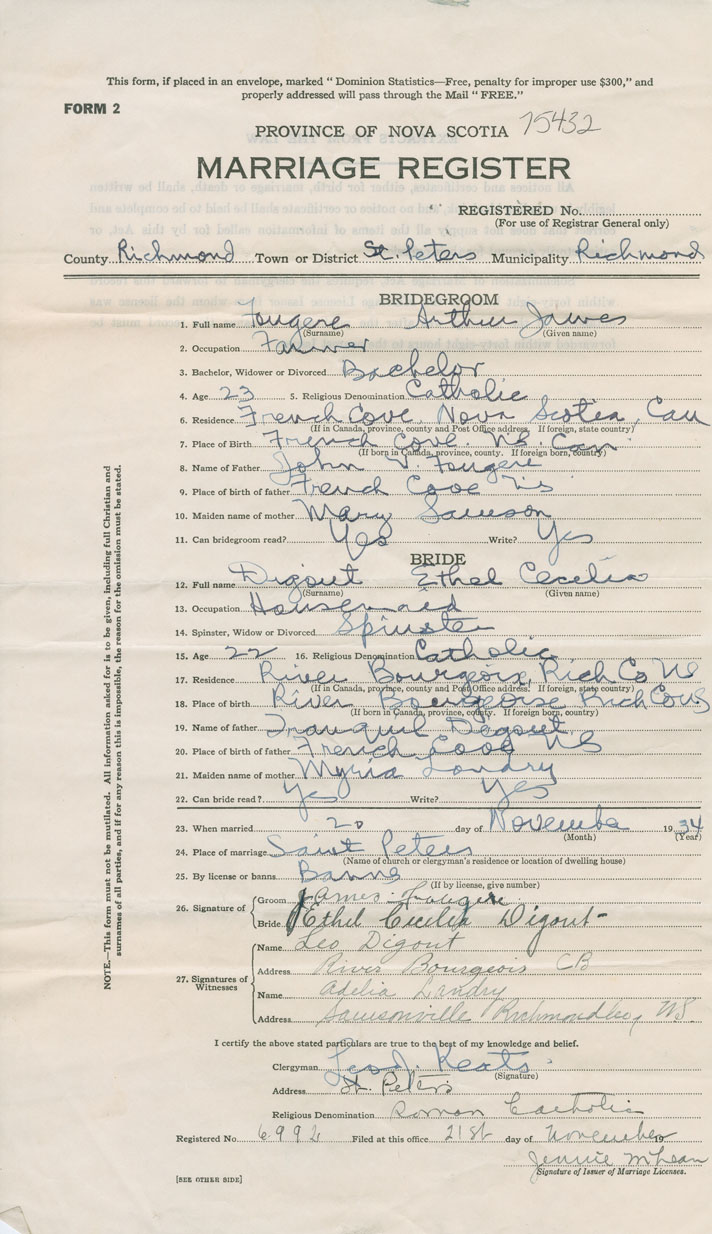 This form, if placed in an envelope, marked “ Dominion Statistics—Free, penalty for improper use $300,” and
properly addressed will pass through the Mail “ FREE.”
FORM 2
PROVINCE OF NOVA SCOTIA 75432
MARRIAGE REGISTER
REGISTERED No.
(For use of Registrar General only)
County Richmond Town or District St. Peters Municipality Richmond
BRIDEGROOM
1. Full name Fougere Arthur James
(Surname) (Given name)
2. Occupation Farmer
3. Bachelor, Widower or Divorced Bachelor
4. Age 23 5. Religious Denomination Catholic
6. Residence French Cove, Nova Scotia, Can
(If in Canada, province, county and Post Office address. If foreign, state country)
7. Place of Birth French Cove. NS. Can
(If born in Canada, province, county. If foreign born, country)
8. Name of Father John V. Fougere
9. Place of birth of father French Cove NS
10. Maiden name of mother Mary Samson
11. Can bridegroom read? Yes Write? Yes
BRIDE
12. Full name Digout Ethel Cecilia
(Surname) (Given name)
13. Occupation Housemaid
14. Spinster, Widow or Divorced Spinster
15. Age 22 16. Religious Denomination Catholic
17. Residence River Bourgeois, Rich Co NS
(If in Canada, province, county and Post Office address. If foreign, state country)
18. Place of birth River Bourgeois Rich Co NS
(If born in Canada, province, county. If foreign born, country)
19. Name of father Tranquil Degout
20. Place of birth of father French Cove NS
21. Maiden name of mother Myria Landry
22. Can bride read? Yes Write? Yes
23. When married 20 day of November 1934
(Month) (Year)
24. Place of marriage Saint Peters
(Name of church or clergyman's residence or location of dwelling house)
25. By license or banns Banns
(If by license, give number)
26. Signature of Groom James Fougere
Bride Ethel Cecilia Digout
27. Signatures of Witnesses
Name Leo Digout
Address River Bourgeois CB
Name Adelia Landry
Address Samsonville Richmond Co, NS.
I certify the above stated particulars are true to the best of my knowledge and belief.
Clergyman Leo J. Keats
(Signature)
Address St. Peters
Religious Denomination Roman Catholic
Registered No. 6992 Filed at this office 21st day of November 19
Jennie McLean
Signature of Issuer of Marriage Licenses.
[SEE OTHER SIDE]
NOTE.—This form must not be mutilated. All information asked for is to be given, including full Christian and
surnames of all parties, and if for any reason this is impossible, the reason for the omission must be stated.